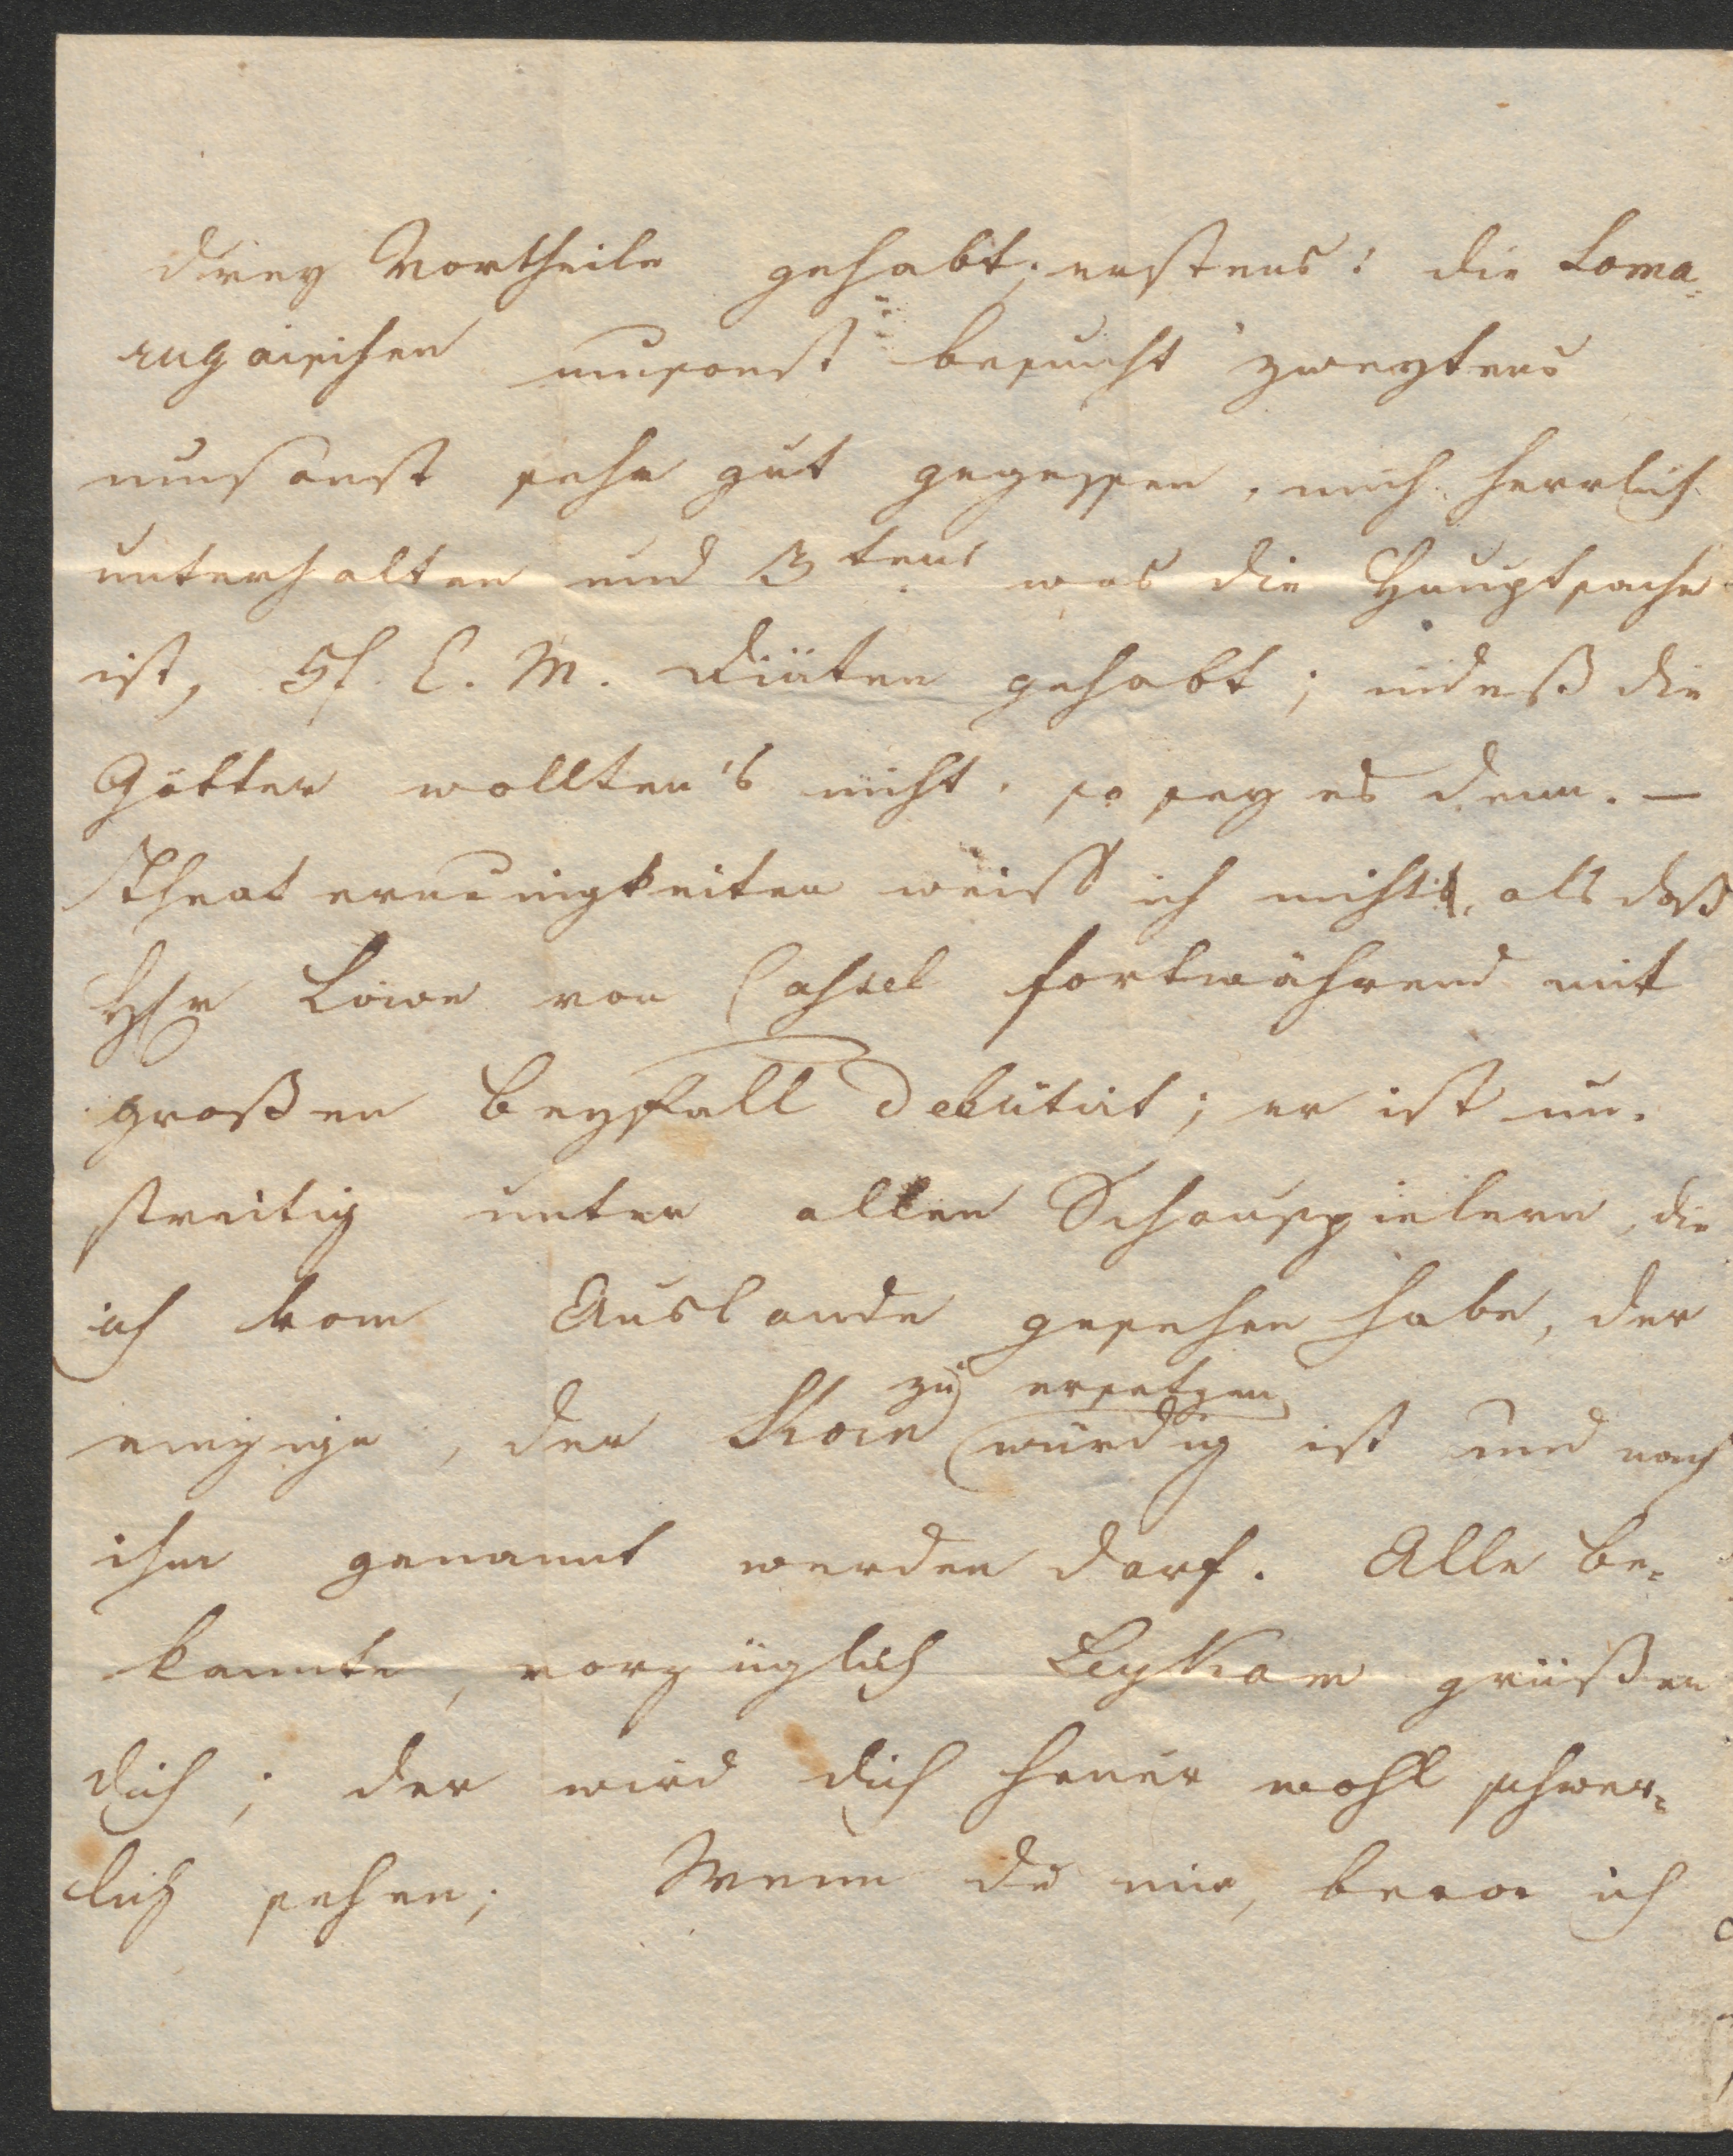 drey Vortheile gehabt; erstens: die Loma-
umsonst besucht zweytens
umsonst sehr gut gegessen, mich herrlich
unterhalten und 3tens was die Hauptsache
ist, 5f. C. M. Diäten gehabt; indeß die
Götter wollten's nicht. so sey es denn. —
Theaterneuigkeiten weiß ich nichts, als daß
Hr Löwe von Cassel fortwährend mit
großen Beyfall debütirt; er ist un-
streitig unter allen Schauspielern, die
ich vom Auslande gesehen habe, der
einzige, der Korn zu ersetzen würdig ist und nach
ihm genannt werden darf. Alle Be-
kannte, vorzüglich Leykam grüßen
dich; der wird dich heuer wohl schwer-
lich sehen; Wenn du mir, bevor ich